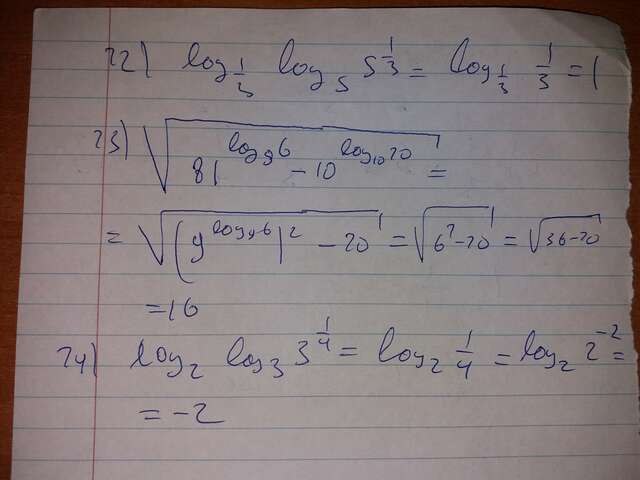 22) log_{1/3} log_5 5^{1/3} = log_{1/3} 1/3 = 1
23) √(81^{log_9 6} - 10^{log_{10} 20}) =
= √((9^{log_9 6})^2 - 20) = √(6^2 - 20) = √(36 - 20)
= 16
24) log_2 log_3 3^{1/4} = log_2 1/4 = log_2 2^{-2} =
= -2